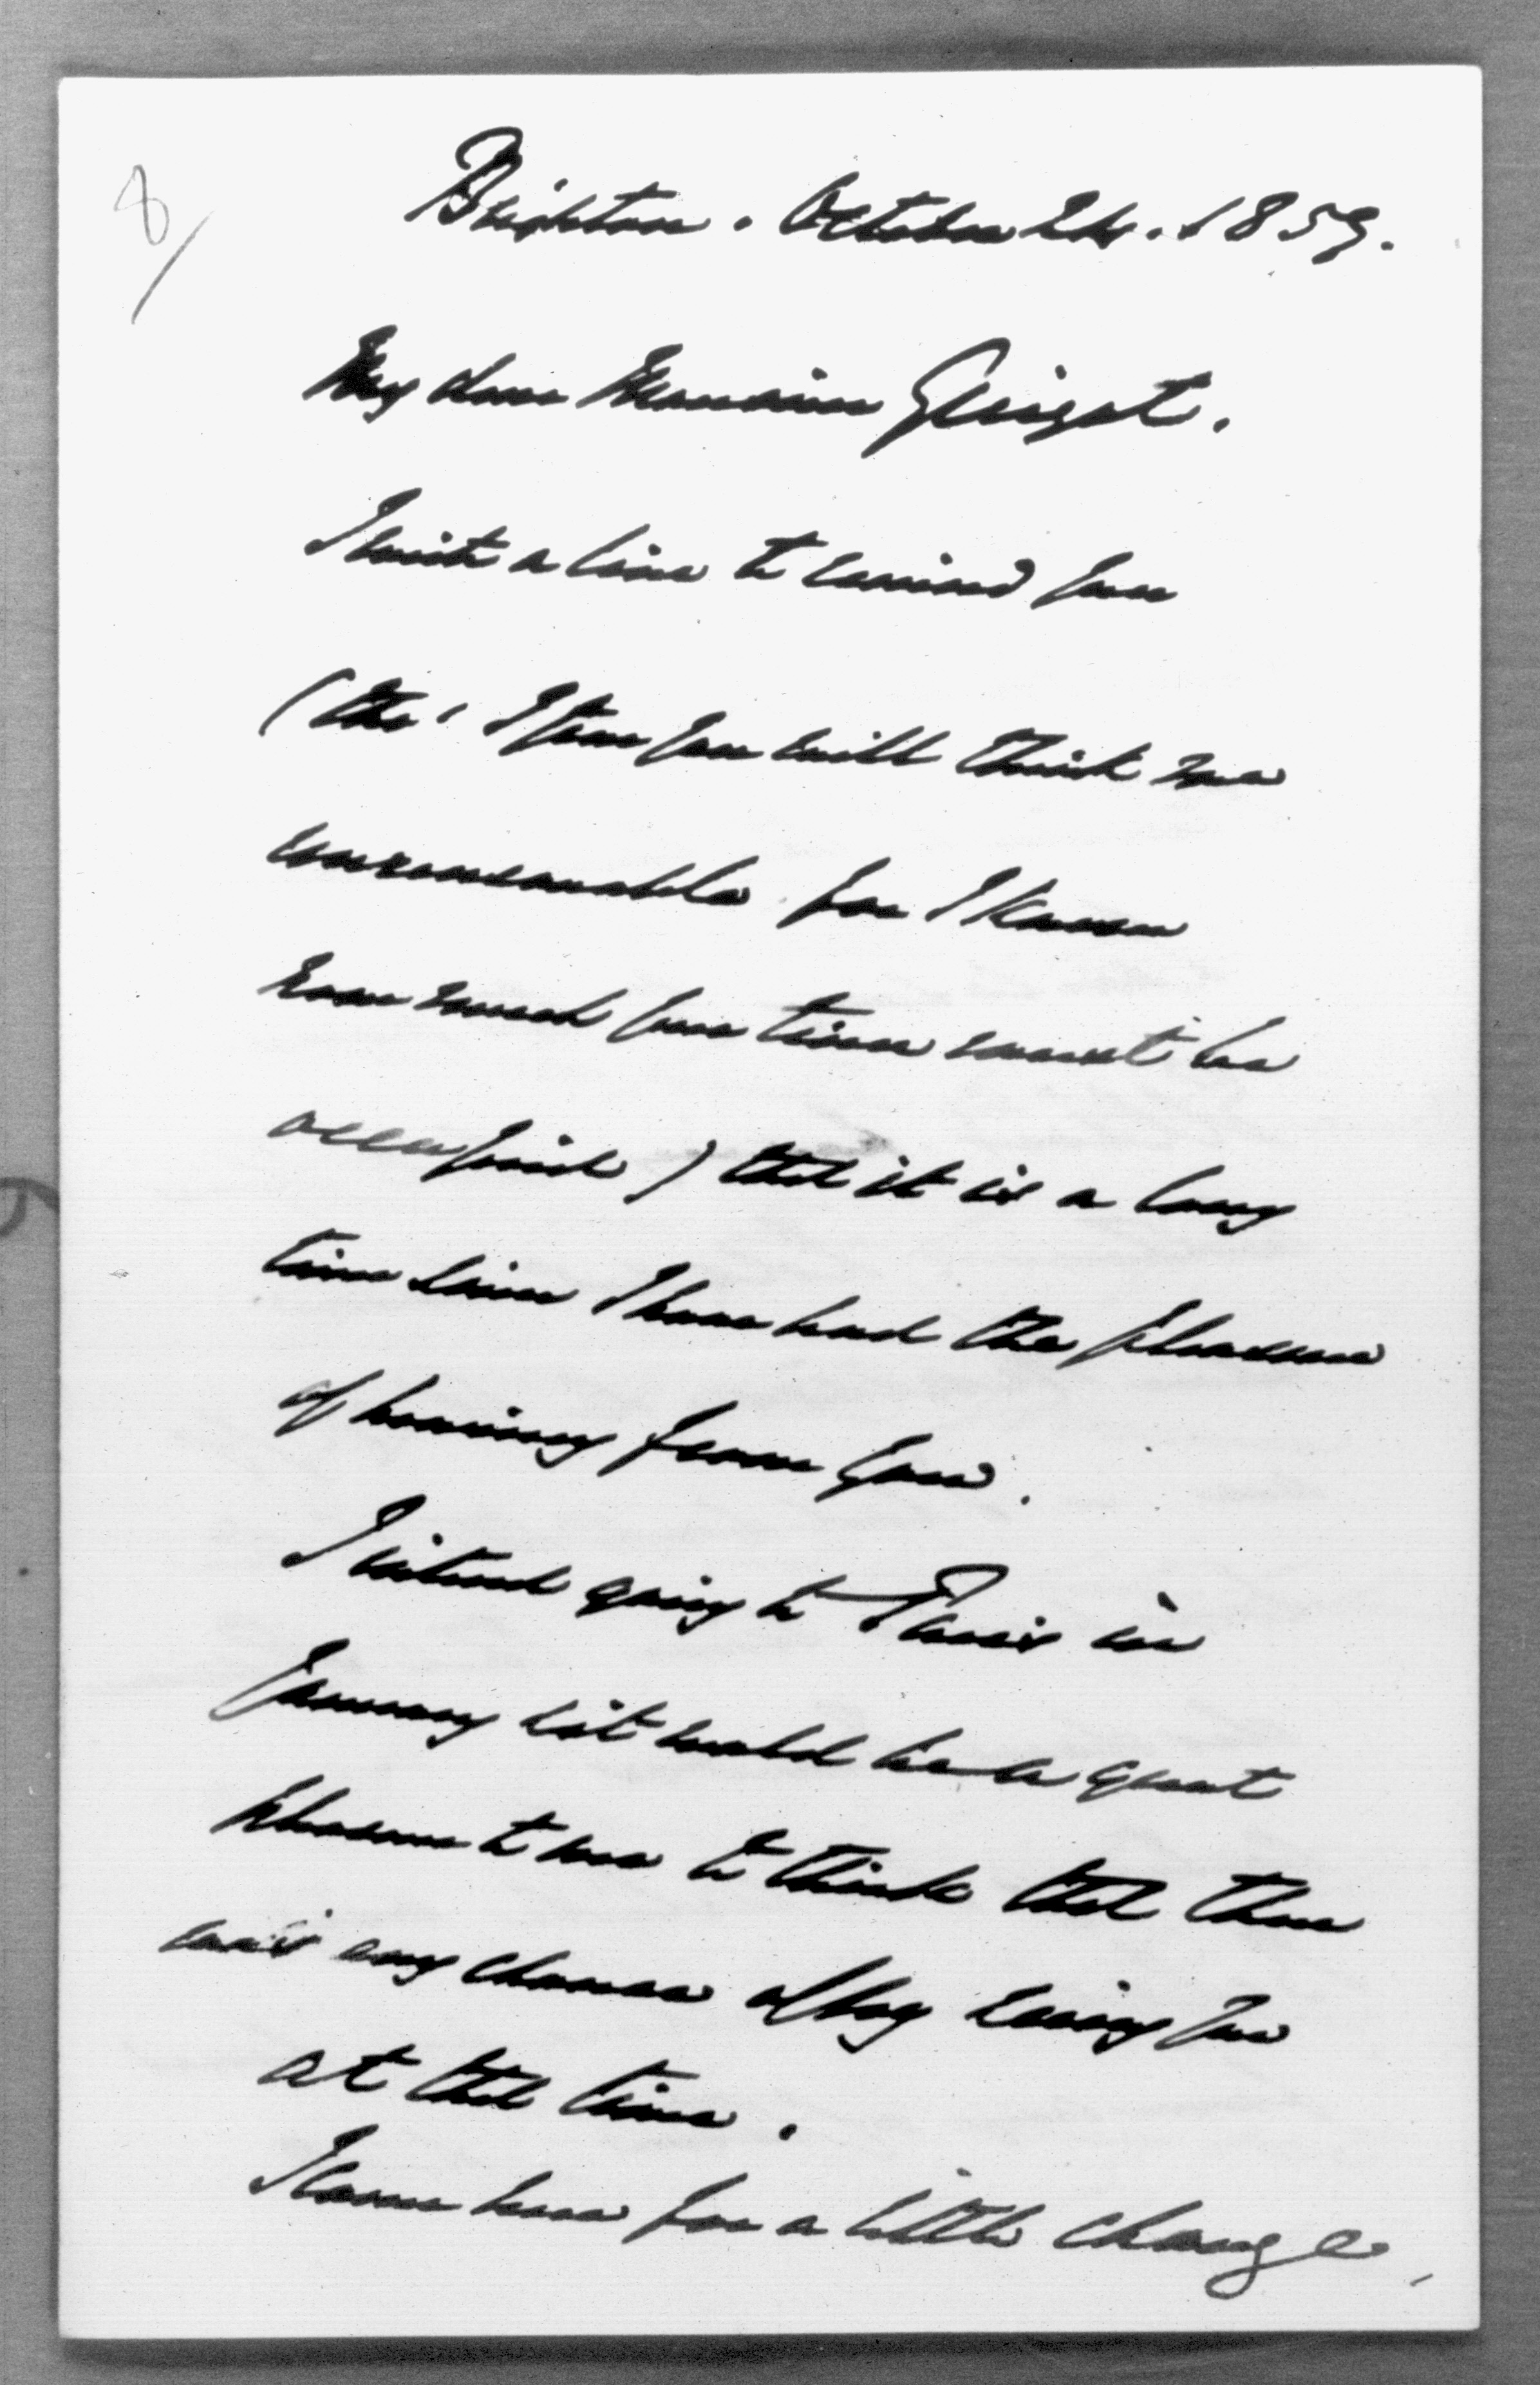 8/
Brighton. October 24. 1859.
My dear Monsieur Guizot.
I write a line to remind you
(tho' I fear you will think me
unreasonable for I know
how much your time must be
occupied) that it is a long
time since I have had the pleasure
of hearing from you.
I intend going to Paris in
January & it would be a great
pleasure to me to think that there
was any chance of my seeing you
at that time.
I came here for a little change,